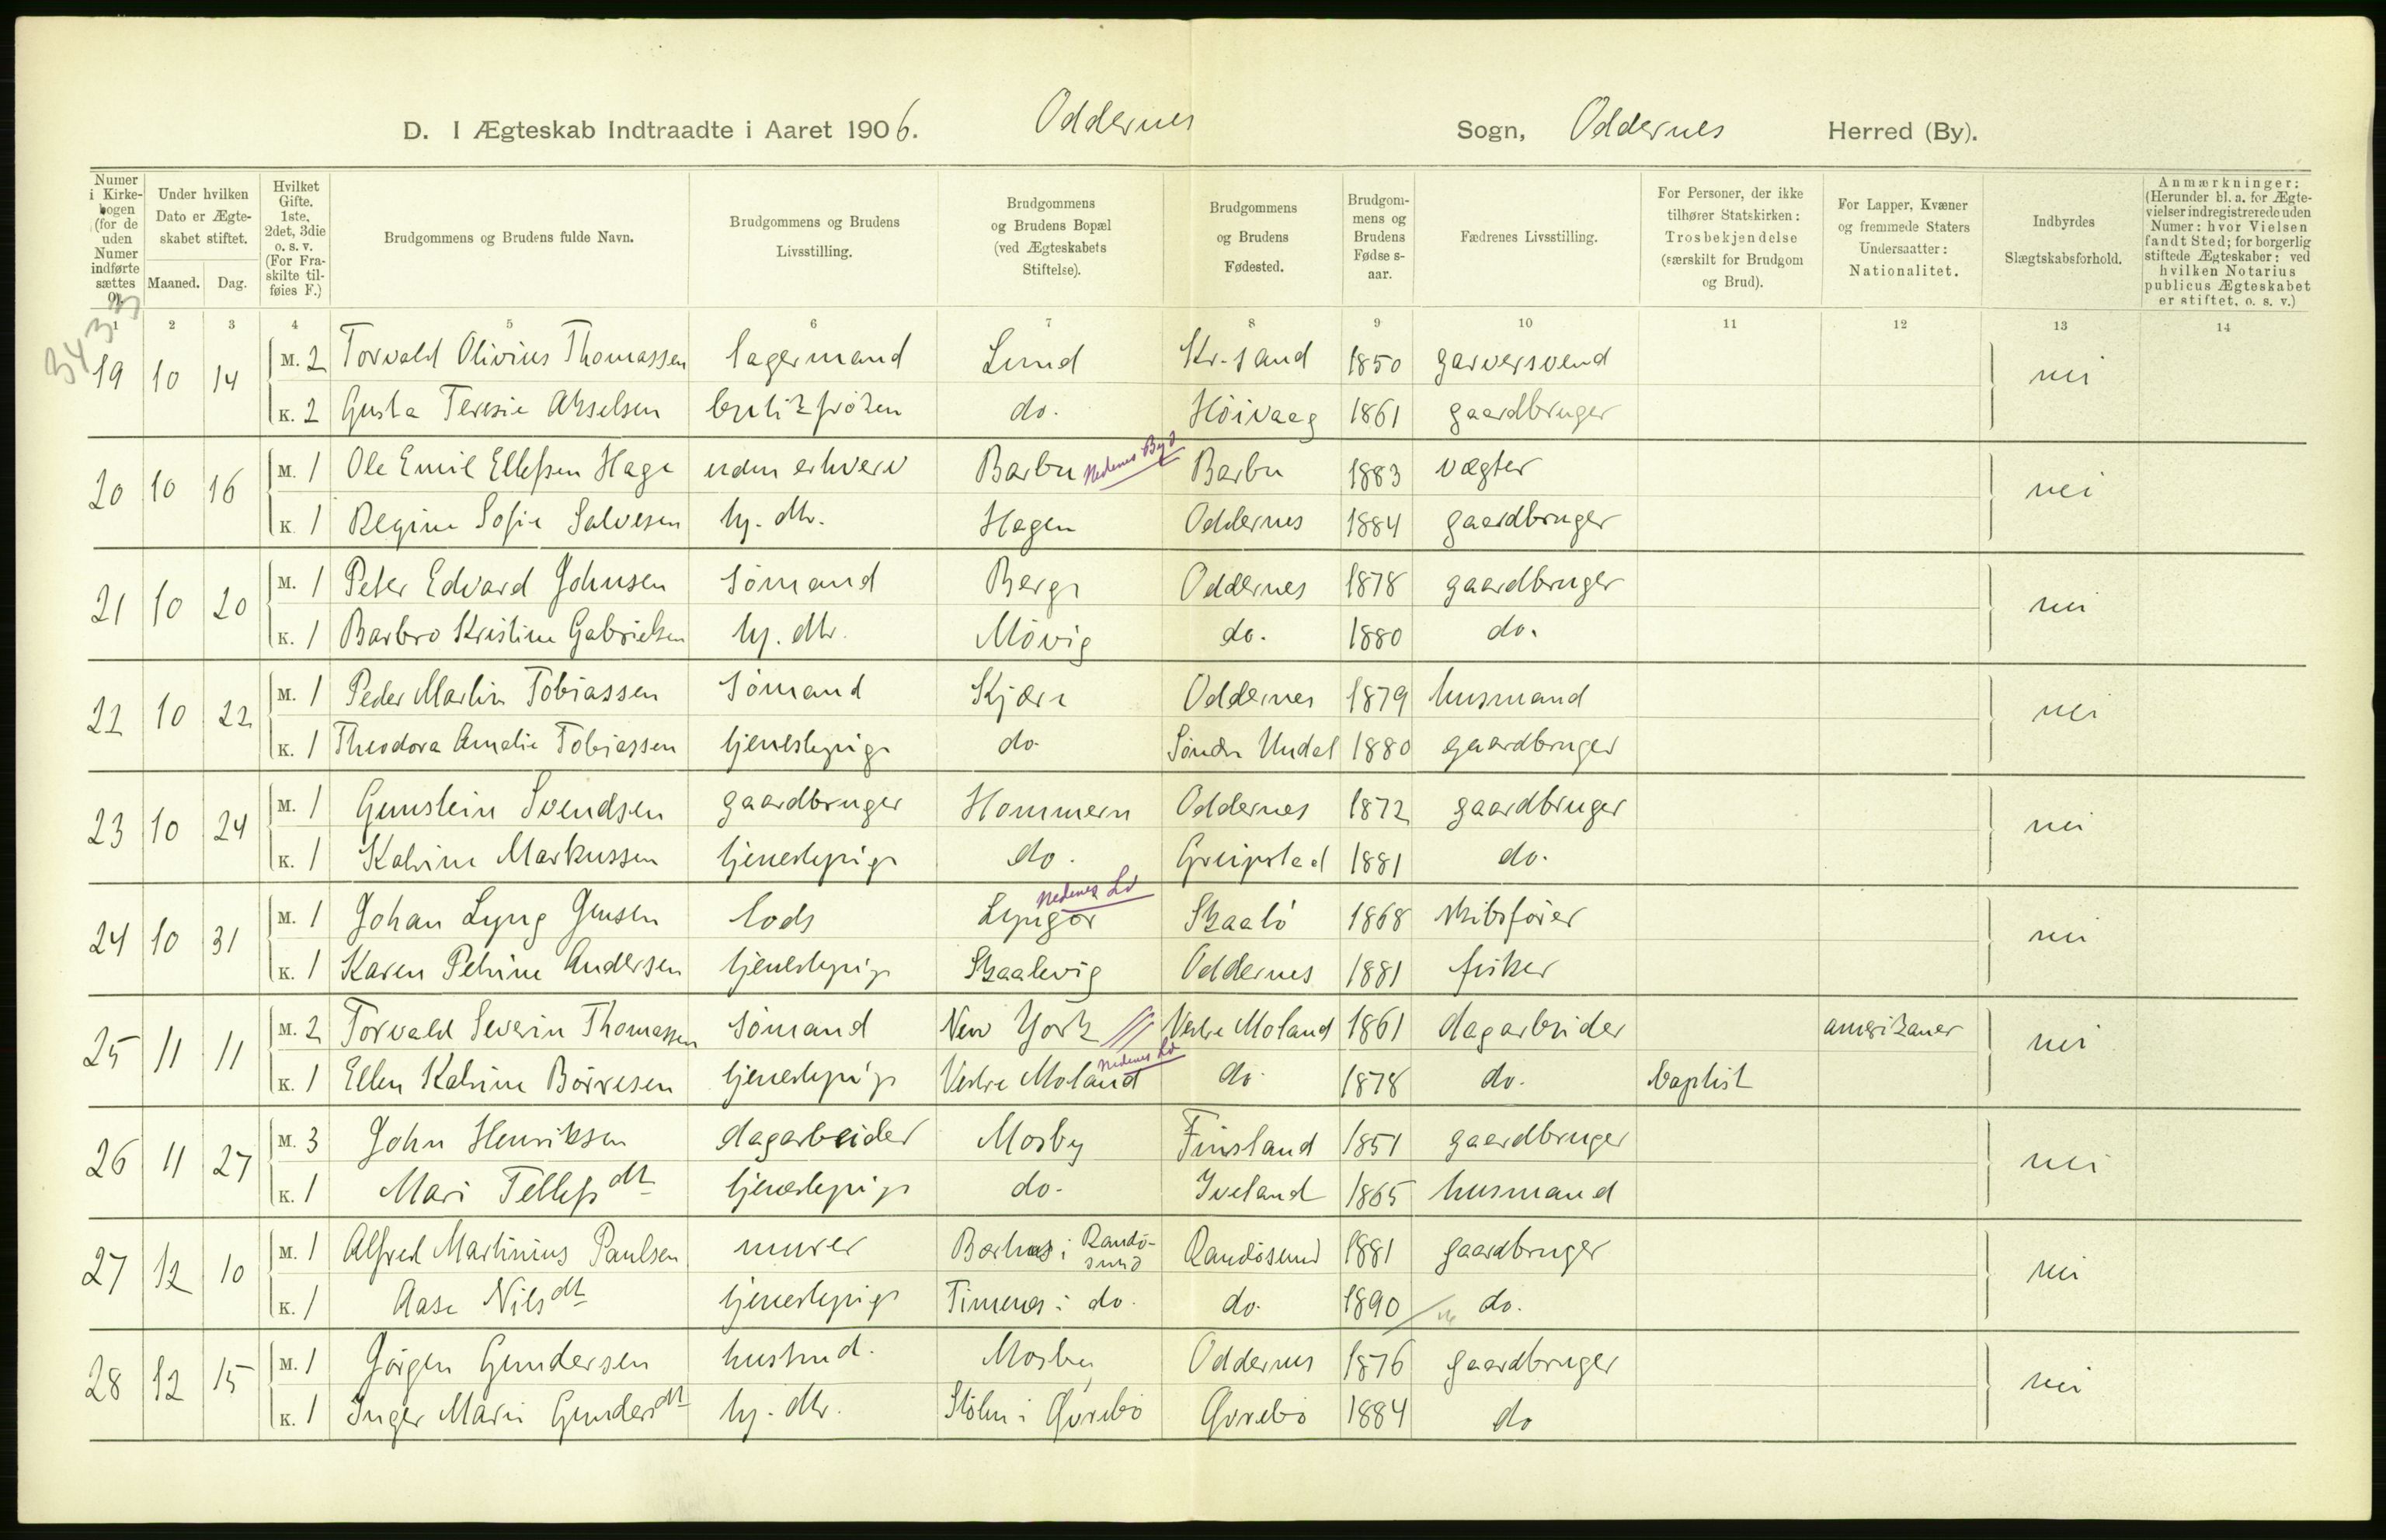 D. I Ægteskab Indtraadte i Aaret 1906. Oddernes Sogn, Oddernes Herred (By).
Numer i Kirke-bogen (for de uden Numer indførte sættes 0). Under hvilken Dato er Ægte-skabet stiftet. Maaned. Dag. Hvilket Gifte. 1ste, 2det, 3die o. s. v. (For Fra-skilte til-føies F.) Brudgommens og Brudens fulde Navn. Brudgommens og Brudens Livsstilling. Brudgommens og Brudens Bopæl (ved Ægteskabets Stiftelse). Brudgommens og Brudens Fødested. Brudgom-mens og Brudens Fødse s-aar. Fædrenes Livsstilling. For Personer, der ikke tilhører Statskirken: Trosbekjendelse (særskilt for Brudgom og Brud). For Lapper, Kvæner og fremmede Staters Undersaatter: Nationalitet. Indbyrdes Slægtskabsforhold. Anmærkninger: (Herunder bl. a. for Ægte-vielser indregistrerede uden Numer: hvor Vielsen fandt Sted; for borgerlig stiftede Ægteskaber: ved hvilken Notarius publicus Ægteskabet er stiftet, o. s. v.)
1 2 3 4 5 6 7 8 9 10 11 12 13 14
3433
19 10 14 M. 2 Torvald Olivius Thomassen lagermand Lund Kr.sand 1850 garversvend nei
K. 2 Gusta Teresie Akselsen butikfrøken do. Höivaag 1861 gaardbruger
20 10 16 M. 1 Ole Emil Ellefsen Hage uden erhverv Barbu Nedenes Barbu 1883 vægter nei
K. 1 Regine Sofie Salvesen hj. dtr. Hagen Oddernes 1884 gaardbruger
21 10 20 M. 1 Peter Edvard Johnsen sömand Berge Oddernes 1878 gaardbruger nei
K. 1 Barbro Kristine Gabrielsen hj. dtr. Mövig do. 1880 do.
22 10 22 M. 1 Peder Martin Tobiassen sömand Kjære Oddernes 1879 husmand nei
K. 1 Theodora Amalie Tobiassen tjenestepige do. Söndre Undal 1880 gaardbruger
23 10 24 M. 1 Gunstein Svendsen gaardbruger Hommeren Oddernes 1872 gaardbruger nei
K. 1 Katrine Markussen tjenestepige do. Greipstad 1881 do.
24 10 31 M. 1 Johan Lyng Jensen lods Lyngör Nedenes Skaatö 1868 skibsförer nei
K. 1 Karen Petrine Andersen tjenestepige Skaalevig Oddernes 1881 fisker
25 11 11 M. 2 Torvald Severin Thomassen sömand New York Vestre Moland 1861 dagarbeider amerikaner nei
K. 1 Ellen Katrine Börresen tjenestepige Vestre Moland Nedenes do. 1878 do. baptist
26 11 27 M. 3 John Henriksen dagarbeider Mosby Finsland 1851 gaardbruger nei
K. 1 Mari Tellefsdtr tjenestepige do. Iveland 1865 husmand
27 12 10 M. 1 Alfred Martinius Paulsen murer i Randö-sund Randösund 1881 gaardbruger nei
K. 1 Aase Nilsdtr tjenestepige Timenes i do. do. 1890 do.
28 12 15 M. 1 Jörgen Gundersen husmd. Mosby Oddernes 1876 gaardbruger nei
K. 1 Inger Marie Gundersdtr hj. dtr. Stölen i Övrebö Övrebö 1884 do